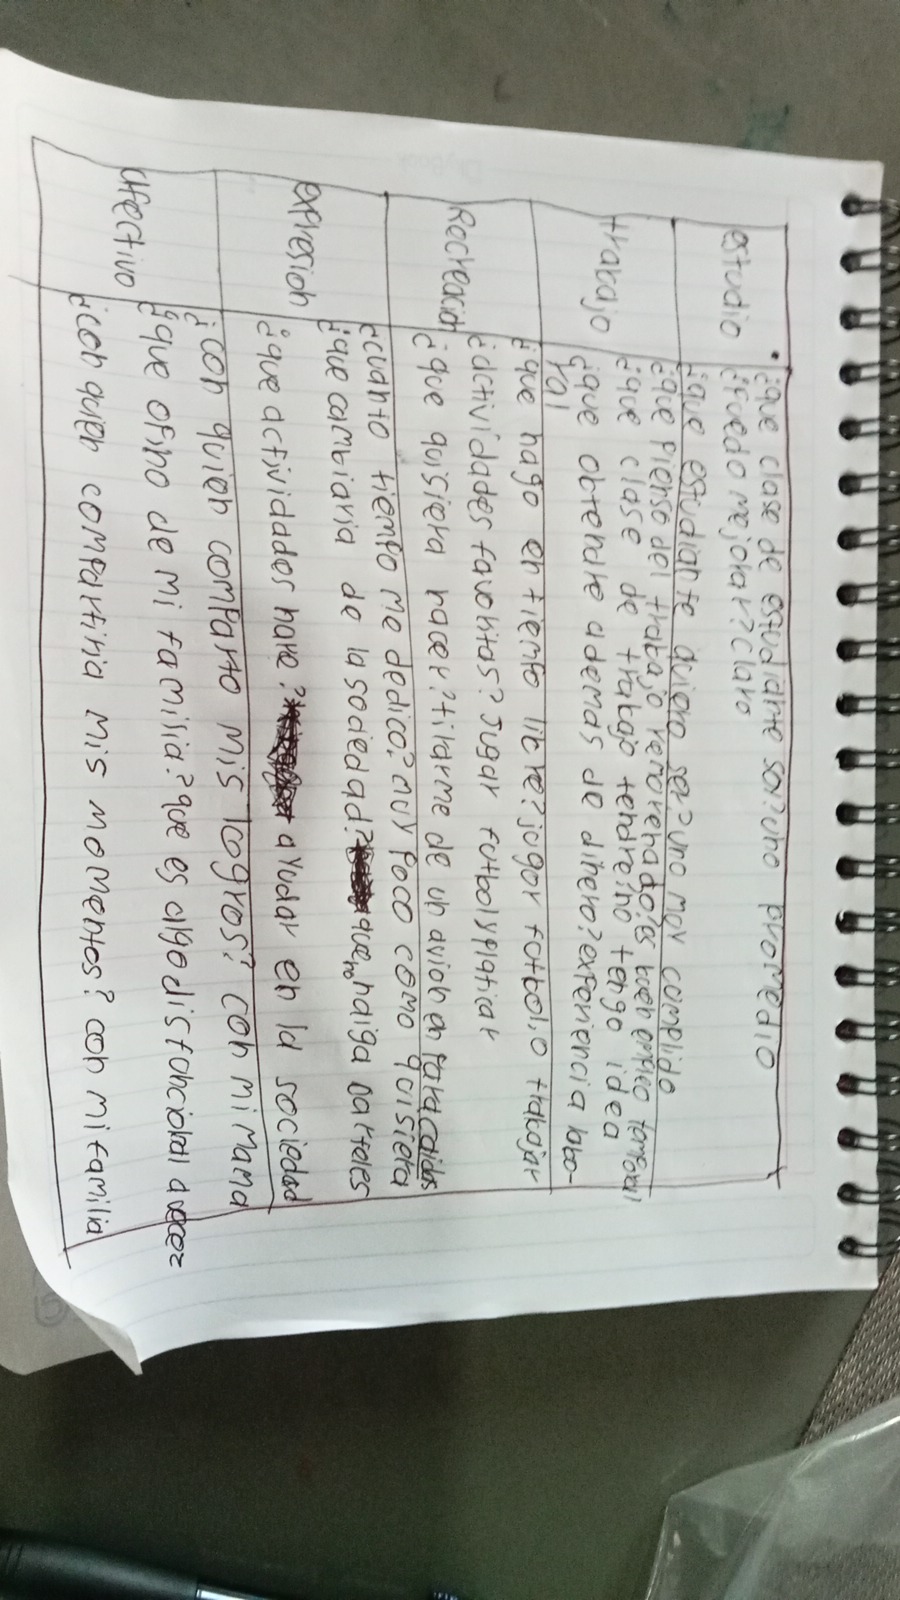 estudio
¿que clase de estudiante soy? uno promedio
¿puedo mejorar? claro
¿que estudiante quiero ser? uno muy cumplido
trabajo
¿que pienso del trabajo renonerado? es buen empleo temporal
¿que clase de trabajo tendre? no tengo idea
¿que obtendre ademas de dinero? experiencia labo-
ral
Recreacion
¿que hago en tiempo libre? jogar futbol, o trabajar
¿actividades favoritas? Jugar futbol y platicar
¿que quisiera hacer? tirarme de un avion en paracaidas
¿cuanto tiempo me dedico? muy poco como quisiera
expresion
¿que cambiaria de la sociedad? que no haiga carteles
¿que actividades hare? ayudar en la sociedad
afectivo
¿con quien comparto mis logros? con mi mama
¿que opino de mi familia? que es algo disfuncional aveces
¿con quien compartiria mis momentos? con mi familia